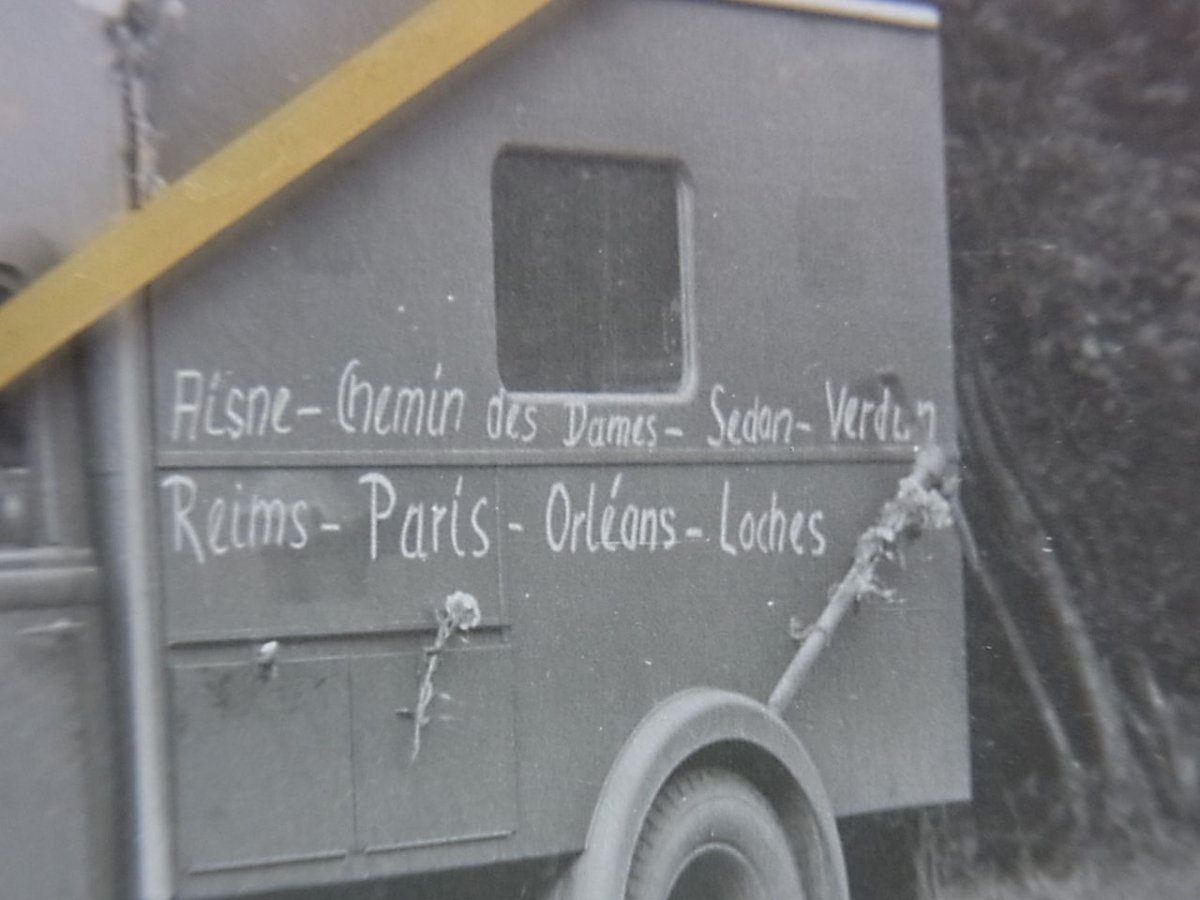 Aisne - Chemin des Dames - Sedan - Verdun
Reims - Paris - Orléans - Loches